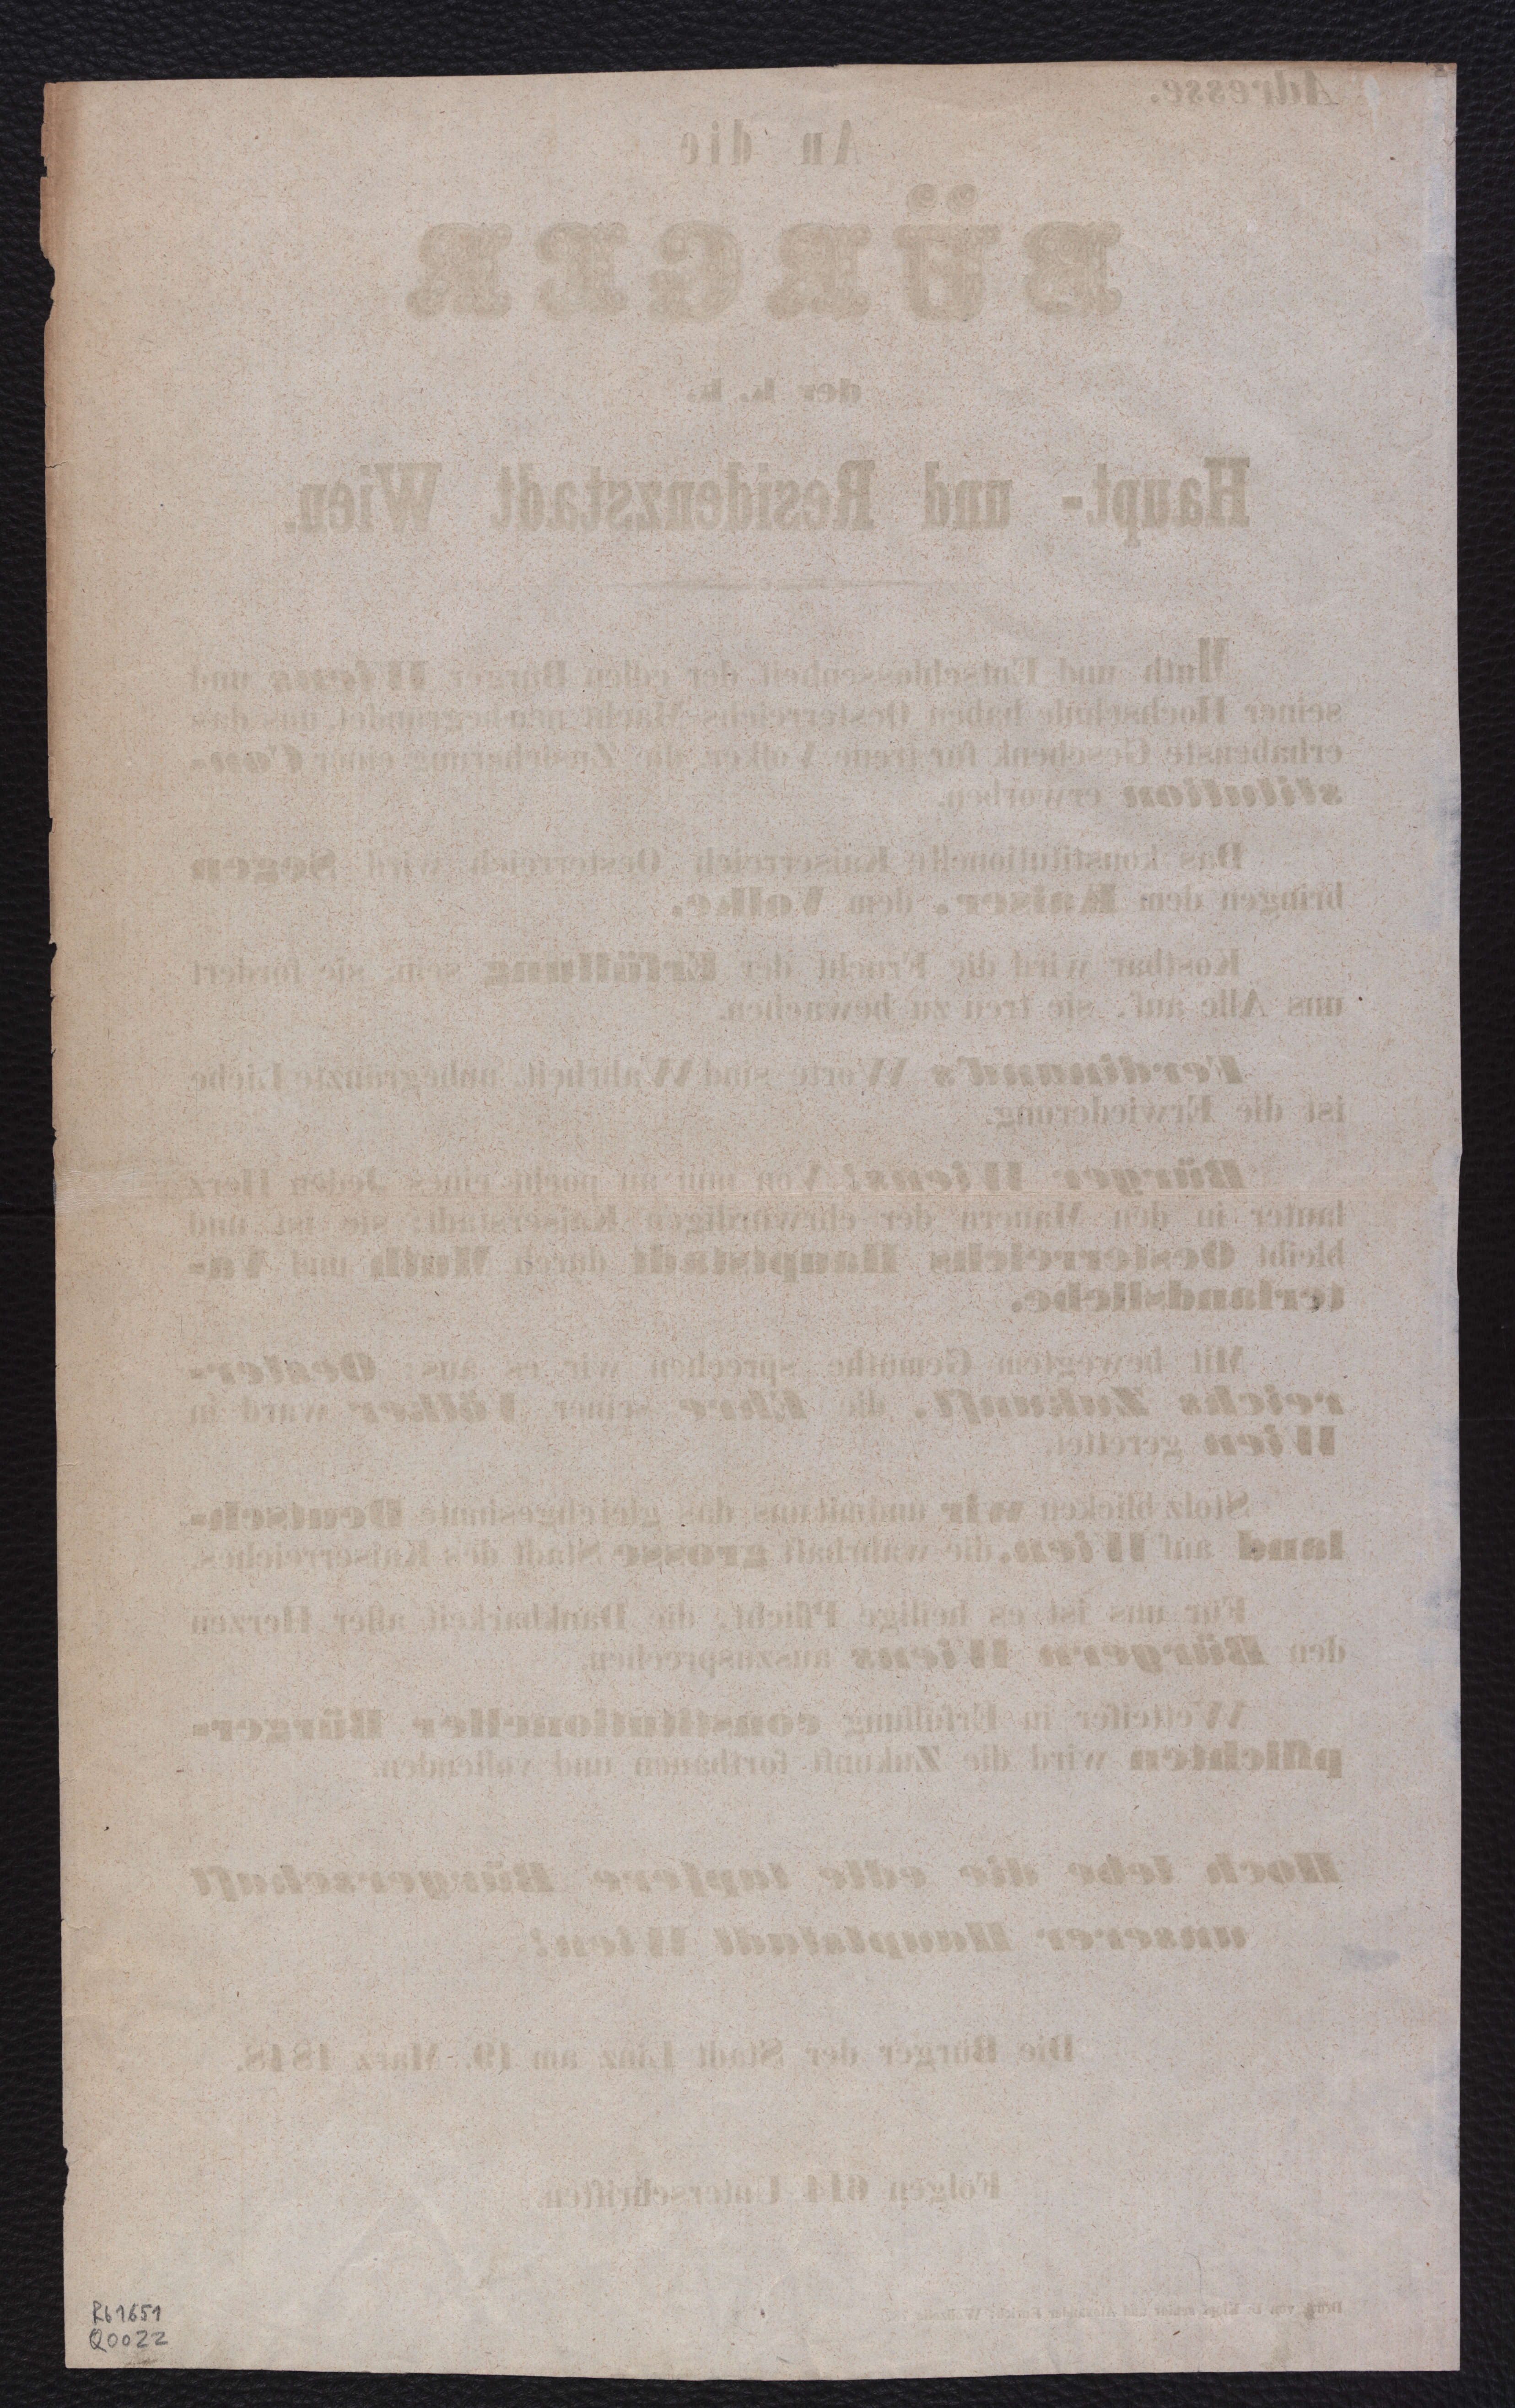 Adresse.
An die
BÜRGER
der k. k.
Haupt- und Residenzstadt Wien.
Muth und Entschlossenheit der edlen Bürger Wiens und
seiner Hochschule haben Oesterreichs Macht neu begründet, uns das
erhabenste Geschenk für treue Völker, die Zusicherung einer Con-
stitution erworben.
Das konstitutionelle Kaiserreich Oesterreich wird Segen
bringen dem Kaiser, dem Volke.
Kostbar wird die Frucht der Erfüllung sein, sie fordert
uns Alle auf, sie treu zu bewachen.
Ferdinand's Worte sind Wahrheit, unbegränzte Liebe
ist die Erwiederung.
Bürger Wiens! Von nun an pocht eines Jeden Herz
lauter in den Mauern der ehrwürdigen Kaiserstadt; sie ist und
bleibt Oesterreichs Hauptstadt durch Muth und Va-
terlandsliebe.
Mit bewegtem Gemüthe sprechen wir es aus: Oester-
reichs Zukunft, die Ehre seiner Völker ward in
Wien gerettet.
Stolz blicken wir und mit uns das gleichgesinnte Deutsch-
land auf Wien, die wahrhaft grosse Stadt des Kaiserreiches.
Für uns ist es heilige Pflicht, die Dankbarkeit aller Herzen
den Bürgern Wiens auszusprechen.
Wetteifer in Erfüllung constitutioneller Bürger-
pflichten wird die Zukunft fortbauen und vollenden.
Hoch lebe die edle tapfere Bürgerschaft
unserer Hauptstadt Wien!
Die Bürger der Stadt Linz am 19. März 1848.
Folgen 614 Unterschriften.
Druck von U. Klopf senior und Alexander Eurich, Wollzeile
Rb1651
Q0022